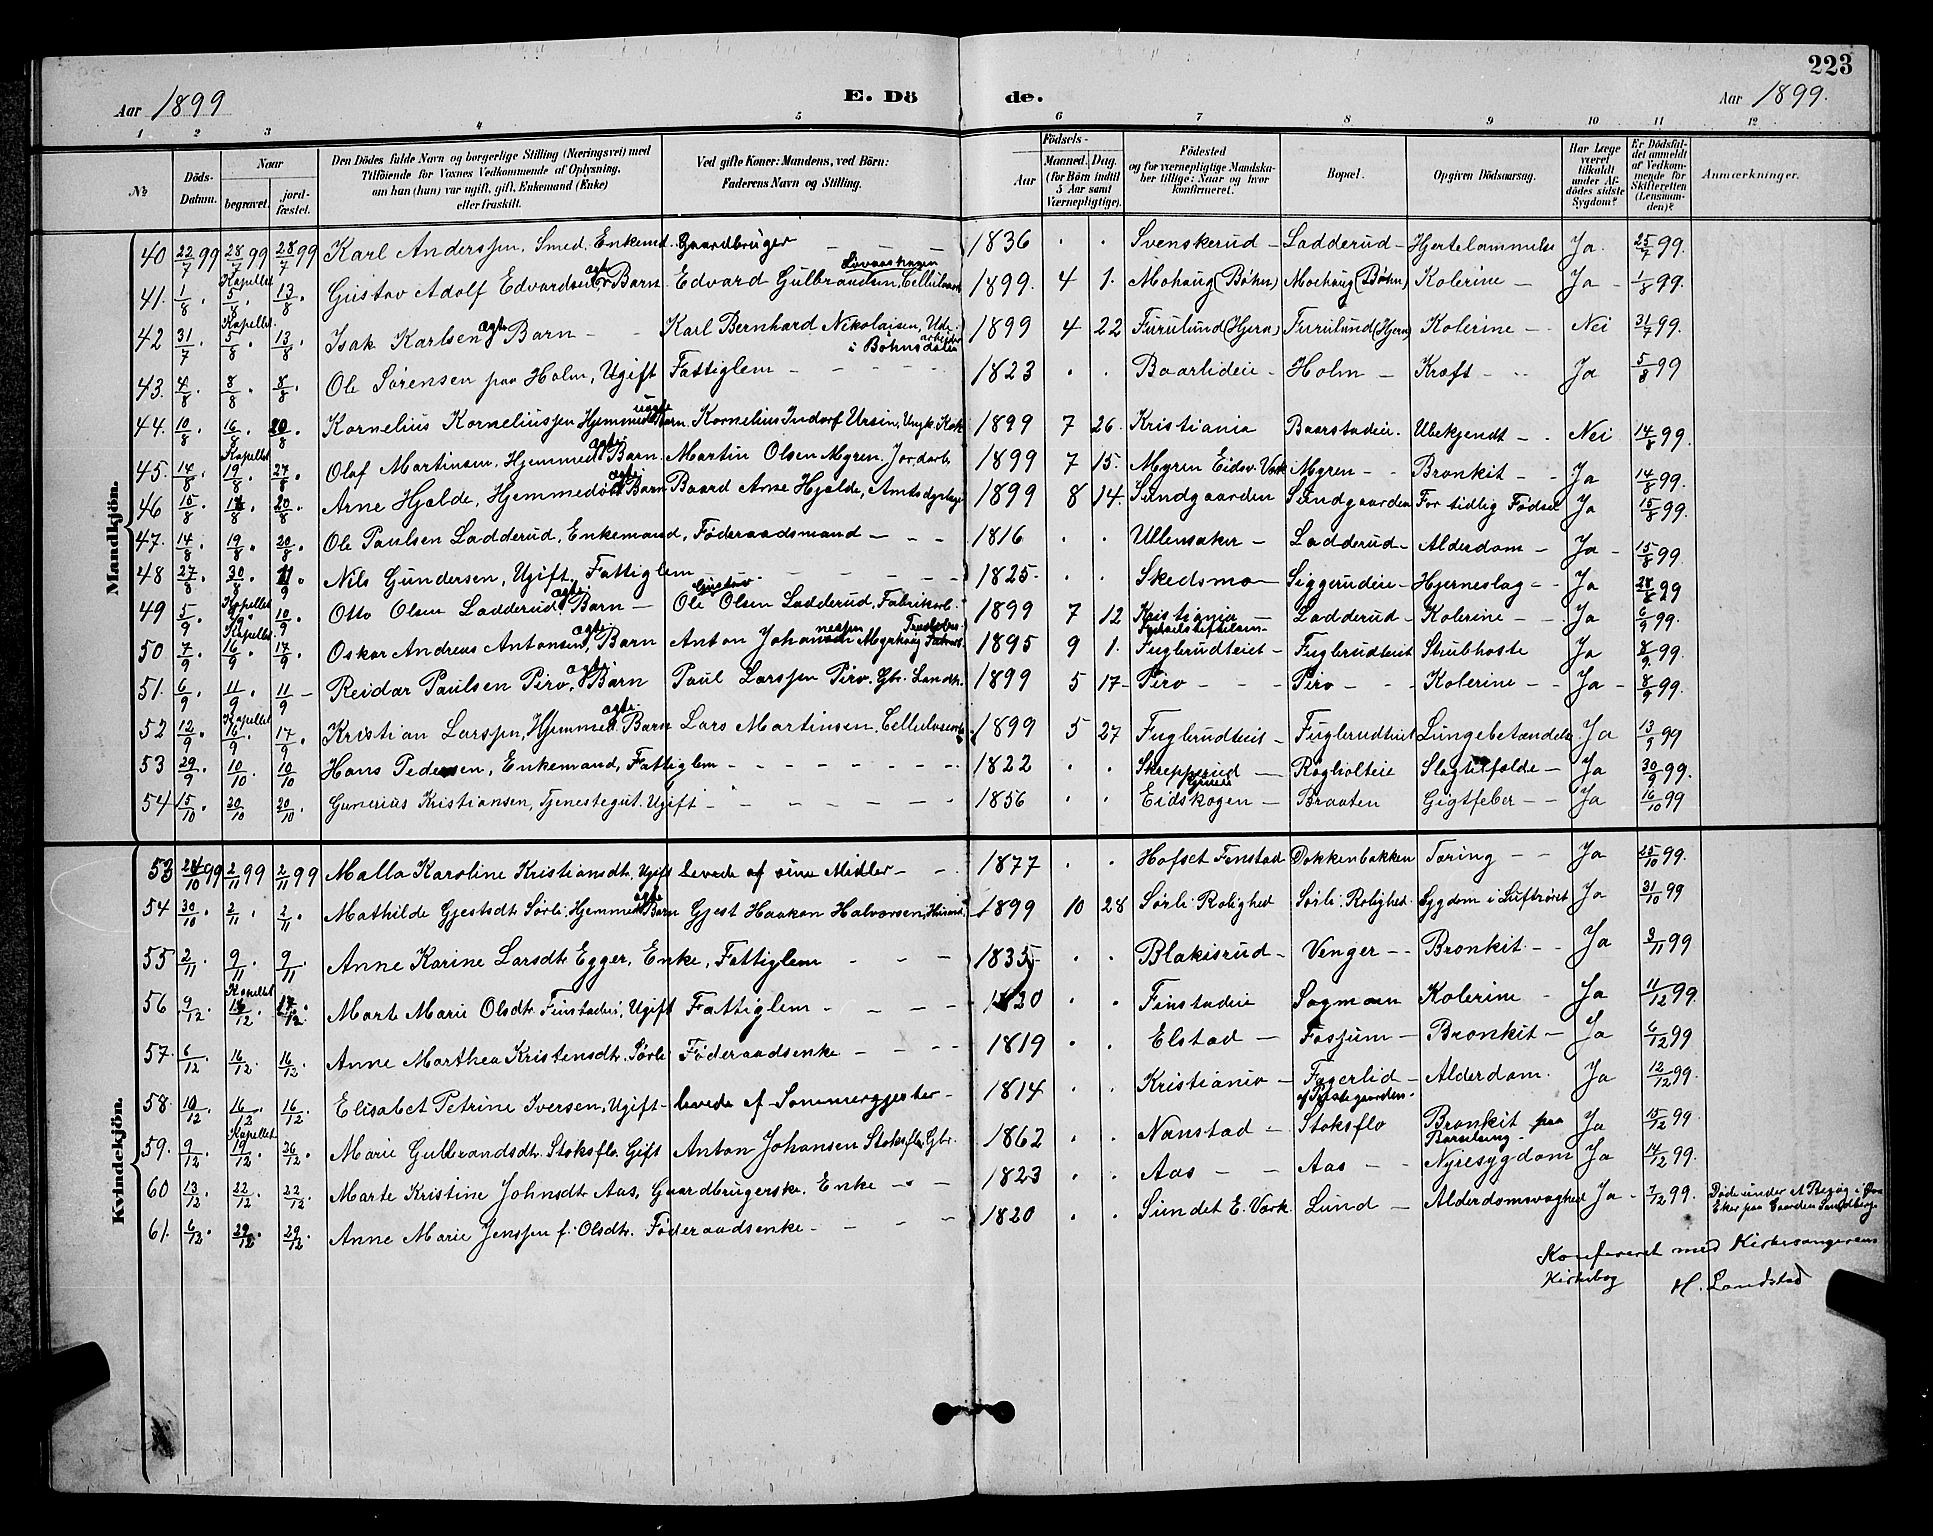 223
Aar 1899 E. Dö de. Aar 1899.
1 2 3 4 5 6 7 8 9 10 11 12
№ Döds-Datum. Naar begravet. jordfæstet. Den Dödes fulde Navn og borgerlige Stilling (Næringsvei) med Tilföiende for Voxnes Vedkommende af Oplysning, om han (hun) var ugift, gift, Enkemand (Enke) eller fraskilt. Ved gifte Koner: Mandens, ved Börn: Faderens Navn og Stilling. Födsels- Aar Maaned. Dag. (for Börn indtil 5 Aar samt Værnepligtige). Födested og for værnepligtige Mandskaber tillige: Naar og hvor konfirmeret. Bopæl. Opgiven Dödsaarsag. Har Læge været tilkaldt under Afdödes sidste Sygdom? Er Dödsfaldet anmeldt af Vedkommende for Skifteretten (Lensmanden)? Anmærkninger.
Mandkjön.
40 22/7 99 28/7 99 28/7 99 Karl Anderssen, Smed, Enkemd. Gaardbruger 1836 Svenskerud Ladderud Hjertelammelse Ja 25/7 99.
41. 1/8 Kapellet 5/8 13/8 Gustav Adolf Edvardsen ægte Barn Edvard Gulbrandsen, 1899. 4 1. Mohaug (Bøhn) Moehaug (Bøhn) Kolerine Ja 1/8 99.
42 31/7 Kapellet 5/8 13/8 Isak Karlsen ægte Barn Karl Bernhard Nikolaisen, arbeider i Bøhnsdalen 1899 4 22 Furulund (Hjera) Furulund (Hjera) Kolerine Nei 31/7 99.
43. 4/8 8/8 8/8 Ole Sørensen paa Holm, Ugift Fattiglem 1823 Baarlideie Holm Kræft Ja 5/8 99
44. 10/8 16/8 20/8 Kornelius Korneliussen Hjemmedøbt uægte Barn. Kornelius Ursin, Ungk. 1899 7 26. Kristiania Baarstadeie Ubekjendt Nei 14/8 99.
45. 14/8 Kapellet 19/8 27/8 Olaf Martinsen, Hjemmed. ægte Barn. Martin Olsen Myren, Jordarb. 1899 7 15. Myren Eidsv. Værk Myren Bronkit Ja 14/8 99.
46 15/8 17/8 20/8 Arne Hjelde, Hjemmedøbt ægte Barn Baard Arne Hjelde, Amtsdyrlæge 1899 8 14. Sundgaarden Sundgaarden For tidlig Fødsel Ja 15/8 99.
47. 14/8 19/8 20/8 Ole Paulsen Ladderud, Enkemand, Føderaadsmand 1816 Ullensaker Ladderud Alderdom Ja 15/8 99.
48 27/8 30/8 Nils Gundersen, Ugift, Fattiglem 1825. Skedsmo Siggerudeie Hjerneslag Ja 28/8 99
49 5/9 Kapellet 10/9 Otto Olsen Ladderud, ægte Barn Ole Gustav Olsen Ladderud, Fabrikarb. 1899 7 12 Kristiania Fødselsstiftelsen Ladderud Kolerine Ja 6/9 99.
50 7/9 Kapellet 16/9 17/9 Oskar Andreas Antonsen, ægte Barn Anton Johannessen Myrhaug 1895 9 1. Fuglerudteiet Fuglerudteiet Strubhoste Ja 8/9 99.
51. 6/9 11/9 11/9 Reidar Paulsen Piro, ægte Barn Paul Larssen Piro. Gbr. Landh. 1899 5 17 Piro Piro Kolerine Ja 8/9 99.
52 12/9 Kapellet 16/9 17/9 Kristian Larssen, Hjemmed. ægte Barn Lars Martinsen. 1899 5 27 Fuglerudteiet Fuglerudteiet Lungebetændelse Ja 13/9 99
53 29/9 10/10 10/10 Hans Pedersen, Enkemand, Fattiglem 1822 Skrepperud Røgholteie Slagtilfælde Ja 30/9 99.
54 15/10 20/10 20/10 Gunerius Kristiansen, Tjenestegut, Ugift 1856 Eidskogen Braaten Gigtfeber Ja 16/10 99
Kvindekjön.
53 24/10 99 2/11 99 2/11 99 Malla Karoline Kristiansdt. Ugift levede af sine Midler 1877 Hofset Fenstad Dokkenbakken Tæring Ja 25/10 99.
54 30/10 2/11 2/11 Mathilde Gjestsdt. Sørli. Hjemmed. ægte Barn Gjest Haakon Halvorsen, Husmd. 1899 10 28 Sørli. Rolighed Sørli. Rolighed Sygdom i Luftrøret Ja 31/10 99
55 2/11 9/11 9/11 Anne Karine Larsdt. Egger, Enke, Fattiglem 1835 Blakisrud Venger Bronkit Ja 3/11 99
56 9/12 Kapellet 16/12 17/12 Marte Marie Olsdt. Finstadeie, Ugift Fattiglem 1830 Finstadeie Sagmoen Kolerine Ja 11/12 99.
57. 6/12 16/12 16/12 Anne Marthea Kristensdt. Sørli Føderaadsenke 1819 Elstad Fossum Bronkit Ja 6/12 99
58. 10/12 16/12 16/12 Elisabet Petrine Iversen, Ugift levede af Sommergjester 1814 Kristiania Fagerlid af Præstegaarden. Alderdom. Ja 12/12 99.
59. 9/12 Kapellet 19/12 26/12 Marie Gulbrandsdt. Stoksflo. Gift Anton Johansen Stoksflo, Gbr. 1862 Nanstad Stoksflo Bronkit paa Barselseng. Ja 15/12 99.
60 13/12 22/12 22/12 Marte Kristine Johnsdt. Aas, Gaardbrugerske, Enke 1823 Aas Aas Nyresygdom Ja 14/12 99.
61. 6/12 29/12 29/12 Anne Marie Jenssen f. Olsdt. Føderaadsenke 1820 Sundet E. Værk Lund Alderdomssvaghed Ja 7/12 99. Døde under et Besøg i Øvre Eker paa Gaarden
Konfereret med Kirkesangerens
Kirkebog H. Landstad